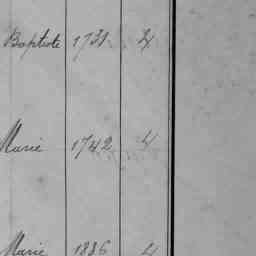 Baptiste 1731 4
Marie 1742 4
Marie 1836 4